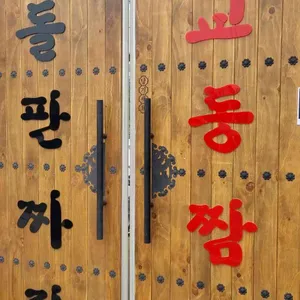 돌판짜
교동짬